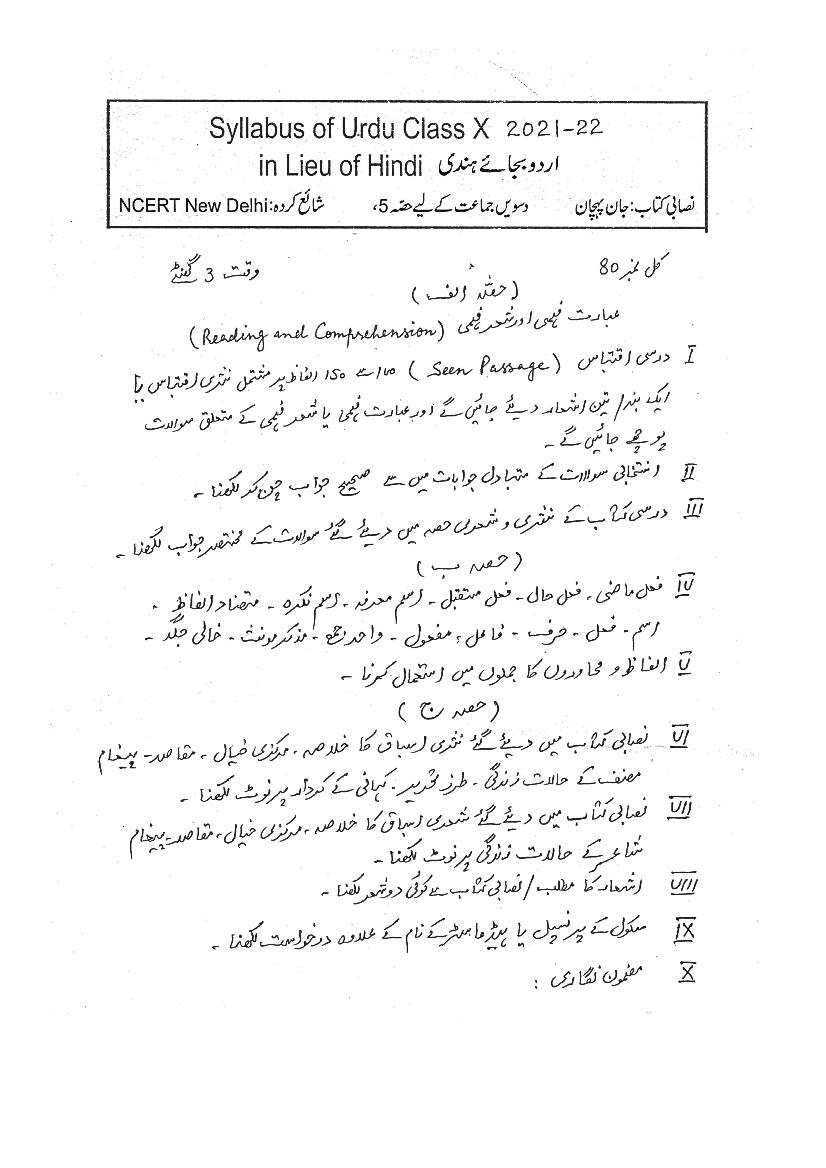 Syllabus of Urdu Class X 2021-22
in Lieu of Hindi اردو بجائے ہندی
نصابی کتاب: جان پہچان دسویں جماعت کے لیے حصّہ 5، شائع کردہ: NCERT New Delhi
کل نمبر 80 وقت 3 گھنٹے
(حصّہ الف)
عبارت فہمی اور شعر فہمی (Reading and Comprehension)
I درسی اقتباس (Seen Passage) 100 سے 150 الفاظ پر مشتمل نثری اقتباس یا
ایک بند/ تین اشعار دیئے جائیں گے اور عبارت فہمی یا شعر فہمی کے متعلق سوالات
پوچھے جائیں گے۔
II انتخابی سوالات کے متبادل جوابات میں سے صحیح جواب چن کر لکھنا۔
III درسی کتاب کے نثری و شعری حصہ میں دیئے گئے سوالات کے مختصر جواب لکھنا۔
(حصہ ب)
IV فعل ماضی۔ فعل حال۔ فعل مستقبل۔ اسم معرفہ۔ اسم نکرہ۔ متضاد الفاظ۔
اسم۔ فعل۔ حرف۔ فاعل، مفعول۔ واحد جمع۔ مذکر مونث۔ خالی جگہ۔
V الفاظ و محاوروں کا جملوں میں استعمال کرنا۔
(حصہ ج)
VI نصابی کتاب میں دیئے گئے نثری اسباق کا خلاصہ، مرکزی خیال، مقاصد۔ پیغام
مصنف کے حالات زندگی۔ طرز تحریر۔ کہانی کے کردار پر نوٹ لکھنا۔
VII نصابی کتاب میں دیئے گئے شعری اسباق کا خلاصہ، مرکزی خیال، مقاصد۔ پیغام
شاعر کے حالات زندگی پر نوٹ لکھنا۔
VIII اشعار کا مطلب / نصابی کتاب سے کوئی دو شعر لکھنا۔
IX سکول کے پرنسپل یا ہیڈ ماسٹر کے نام کے علاوہ درخواست لکھنا۔
X مضمون نگاری :